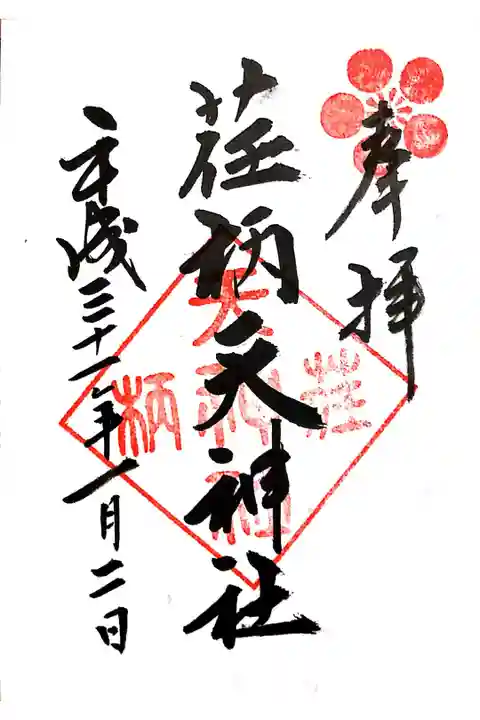 奉拝
荏柄天神社
平成三十一年一月二日
荏
天神社
柄